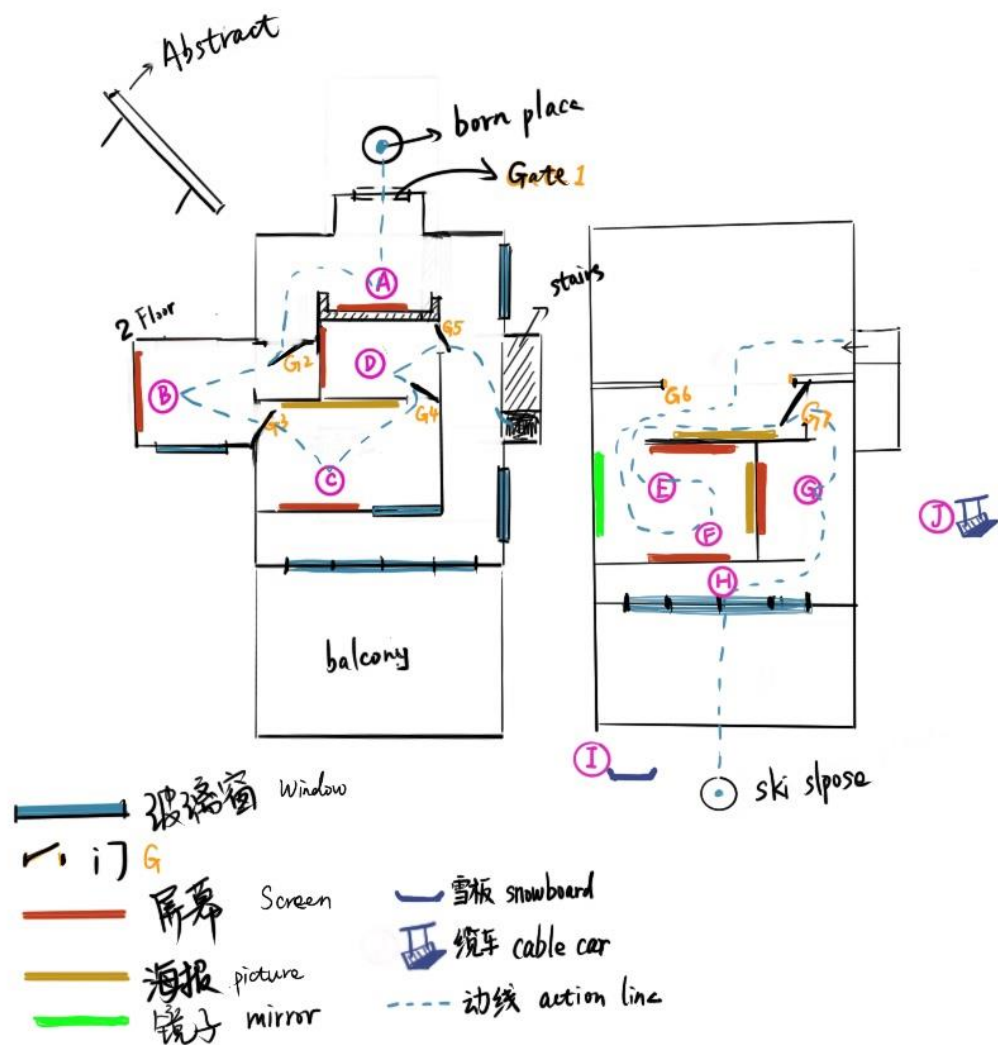 Abstract
born place
Gate 1
A
stairs
2 Floor
G5
G2
D
B
G4
G3
C
balcony
G6
G7
E
G
F
H
J
I
ski slpose
玻璃窗 Window
门 G
屏幕 Screen
海报 picture
镜子 mirror
雪板 snowboard
缆车 cable car
动线 action line